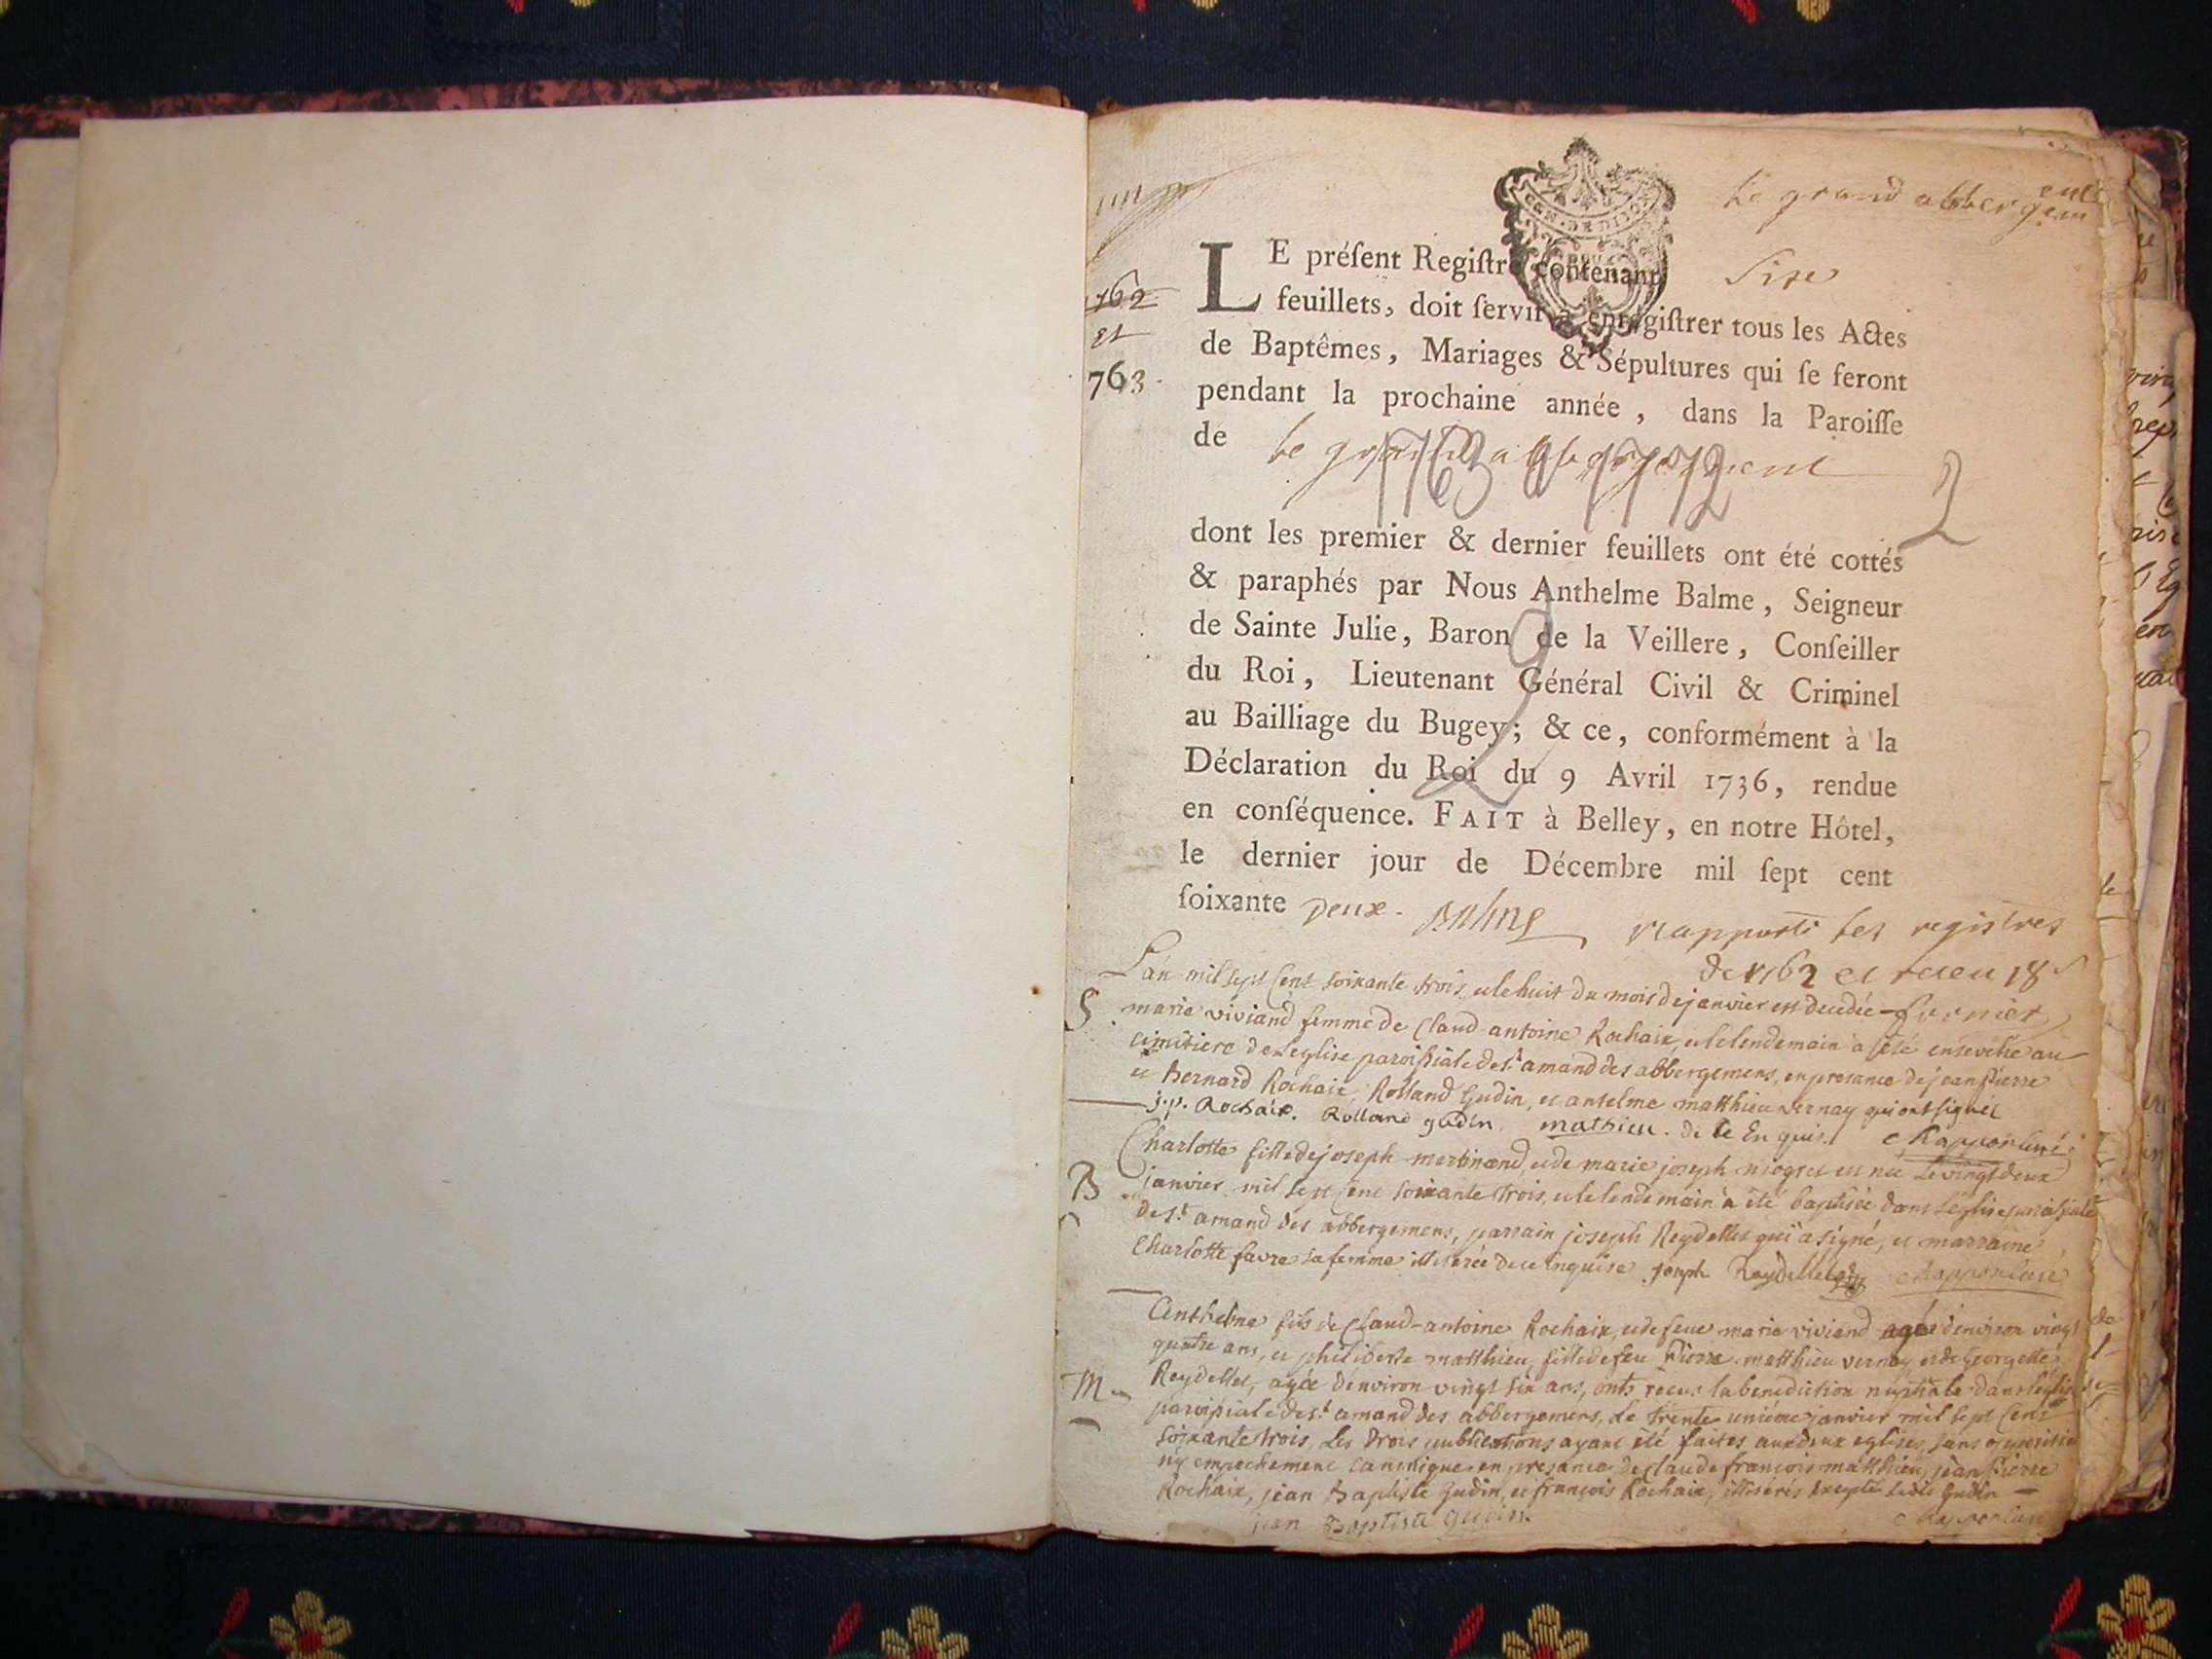 Le grand abbergement
GEN. DE DIJON
LE préſent Regiſtre contenant Sixe
feuillets, doit ſervir à enregiſtrer tous les Actes
de Baptêmes, Mariages & Sépultures qui ſe feront
pendant la prochaine année, dans la Paroiſſe
de le grand abbergement
1763 à 1772
2
1762
et
763
dont les premier & dernier feuillets ont été cottés
& paraphés par Nous Anthelme Balme, Seigneur
de Sainte Julie, Baron de la Veillere, Conſeiller
du Roi, Lieutenant Général Civil & Criminel
au Bailliage du Bugey; & ce, conformément à la
Déclaration du Roi du 9 Avril 1736, rendue
en conſéquence. FAIT à Belley, en notre Hôtel,
le dernier jour de Décembre mil ſept cent
ſoixante Deux. Balme
rapporté les registres
de 1762 et receu 18 s
fornier
L'an mil sept cent soixante trois, et le huit du mois de janvier est decedée
S marie viviand femme de Claud-antoine Rochaix, et le lendemain a été ensevelie au
cimitiere de L'eglise paroissiale de st amand des abbergemens, en presance de jean Pierre
et Bernard Rochaix, Rolland Gudin, et anselme matthieu vernay qui ont signés
j.p. Rochaix. Rolland gudin. mathieu. de ce Enquis.
Charlotte fille de joseph martinand, et de marie joseph est née Le vingt deux
B janvier mil sept cent soixante trois, et le lendemain a été baptisée dans L'église paroissiale
de st amand des abbergemens, parrain joseph Reydellet qui a signé, et marraine
Charlotte favre sa femme illiterée de ce enquise joseph Reydellet
Anthelme fils de Claud-antoine Rochaix, et de feue marie viviand agé d'environ vingt
quatre ans, et philiberte matthieu, fille de feu Pierre matthieu vernay et de Georgette
M Reydellet, agée d'environ vingt six ans, onts recus la benediction nuptiale dans l'église
paroissiale de st amand des abbergemens, Le trente unieme janvier mil sept cent
soixante trois, Les trois publications ayant été faites aux deux eglises, sans opposition
ny empechement canonique en presance de Claude françois matthieu, jean Pierre
Rochaix, jean Baptiste Gudin, et françois Rochaix, illiterés excepté ledit Gudin
jean Baptiste Gudin.